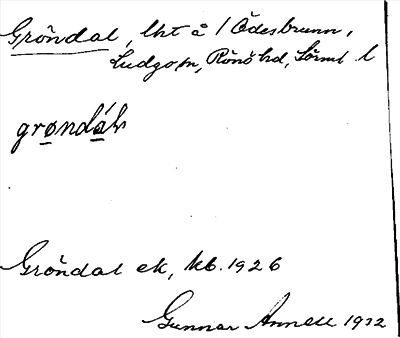 Gröndal, lht å 1 Ödesbrunn,
Ludgo sn, Rönö hd, Sörml. l
grøndál
Gröndal ek, kb. 1926
Gunnar Annell 1932